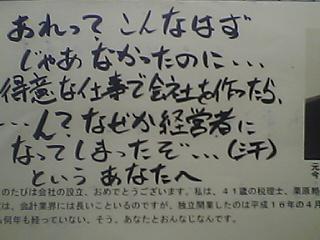 あれっ？こんなはず
じゃあなかったのに・・・
得意な仕事で会社を作ったら、
・・・ん？なぜか経営者に
なってしまったぞ・・・（汗）
というあなたへ
のたびは会社の設立、おめでとうございます。私は、41歳の税理士、栗原
は、会計業界には長いこといるのですが、独立開業したのは平成16年の4月
も何年も経っていない、そう、あなたとおんなじなんです。
元
今